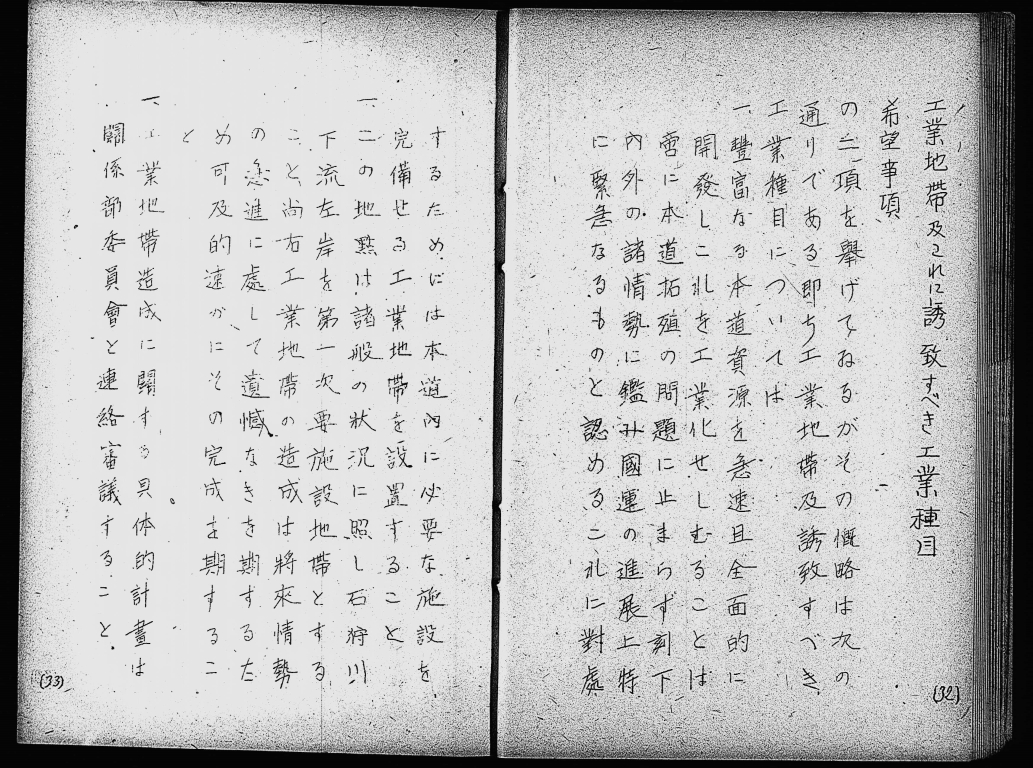 工業地帶及これに誘致すべき工業種目
希望事項
の三項を擧げてゐるがその慨略は次の
通りである即ち工業地帶及誘致すべき
工業種目については
一豐富なる本道資源を急速且全面的に
開發しこれを工業化せしむることは
啻に本道拓殖の問題に止まらず刻下
內外の諸情勢に鑑み國運の進展上特
に緊急なるものと認めるこれに對處
(32)
するためには本道內に必要な施設を
完備せる工業地帶を設置すること
一、この地點は諸般の狀況に照し石狩川
下流左岸を第一次要施設地帶とする
こと尚右工業地帶の造成は將來情勢
の急進に處して遺憾なきを期するた
め可及的速かにその完成を期するこ
と
一、工業地帶造成に關する具体的計畫は
關係部委員會と連絡審議すること。
(33)